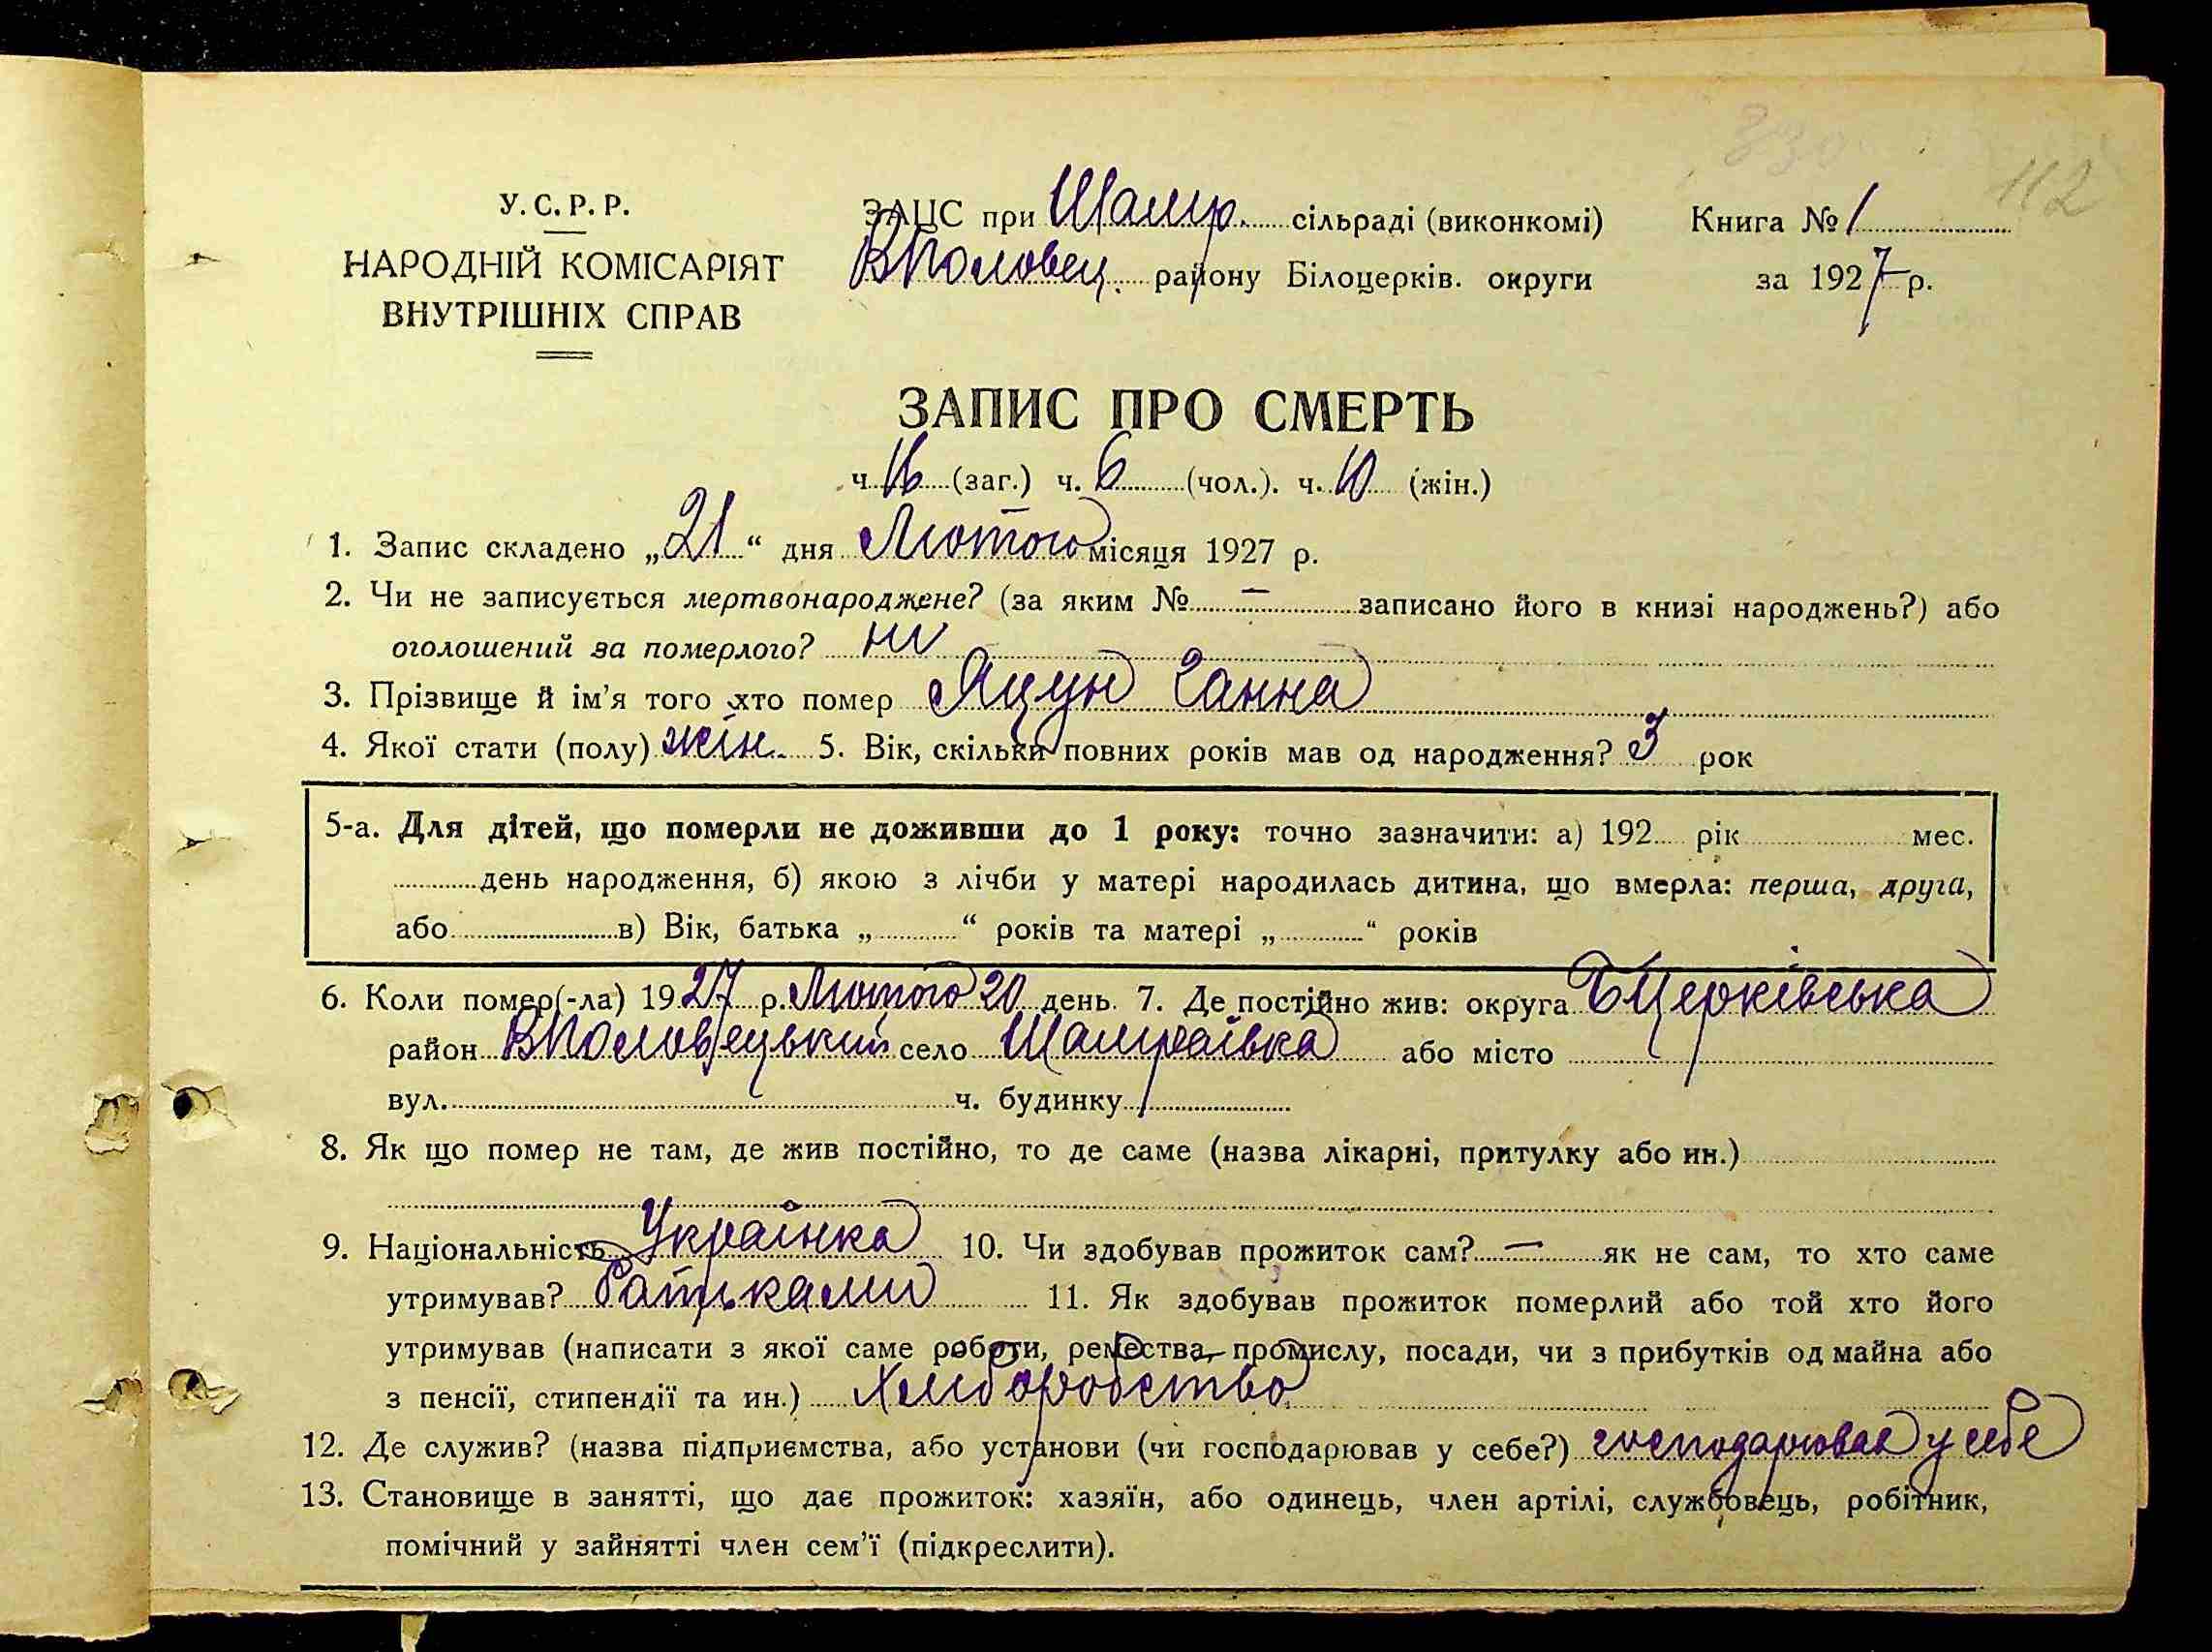 330
112
У. С. Р. Р.
НАРОДНІЙ КОМІСАРІЯТ
ВНУТРІШНІХ СПРАВ
ЗАЦС при Шамр. сільраді (виконкомі)
ВПоловец. району Білоцерків. округи
Книга № 1
за 1927 р.
ЗАПИС ПРО СМЕРТЬ
ч. 16 (заг.) ч. 6 (чол.). ч. 10 (жін.)
1. Запис складено „21“ дня Лютого місяця 1927 р.
2. Чи не записується мертвонароджене? (за яким № — записано його в книзі народжень?) або
оголошений за померлого? ни
3. Прізвище й ім'я того хто помер Яцун Ганна
4. Якої стати (полу) жін. 5. Вік, скільки повних років мав од народження? 3 рок
5-а. Для дітей, що померли не доживши до 1 року: точно зазначити: а) 192 рік мес.
день народження, б) якою з лічби у матері народилась дитина, що вмерла: перша, друга,
або в) Вік, батька „ “ років та матері „ “ років
6. Коли помер(-ла) 1927 р. Лютого 20 день. 7. Де постійно жив: округа БЦерківська
район ВПоловецький село Шамраівка або місто
вул. ч. будинку
8. Як що помер не там, де жив постійно, то де саме (назва лікарні, притулку або ин.)
9. Національність Українка 10. Чи здобував прожиток сам? — як не сам, то хто саме
утримував? Батьками 11. Як здобував прожиток померлий або той хто його
утримував (написати з якої саме роботи, ремества, промислу, посади, чи з прибутків од майна або
з пенсії, стипендії та ин.) Хлиборобство
12. Де служив? (назва підприємства, або установи (чи господарював у себе?) господарював у себе
13. Становище в занятті, що дає прожиток: хазяїн, або одинець, член артілі, службовець, робітник,
помічний у зайнятті член сем'ї (підкреслити).